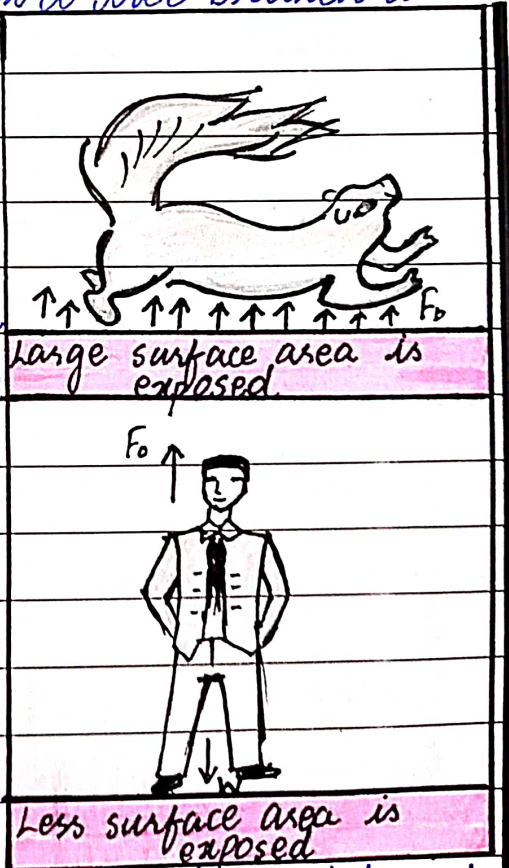 F_D
Large surface area is
exposed
F_D
W
Less surface area is
exposed